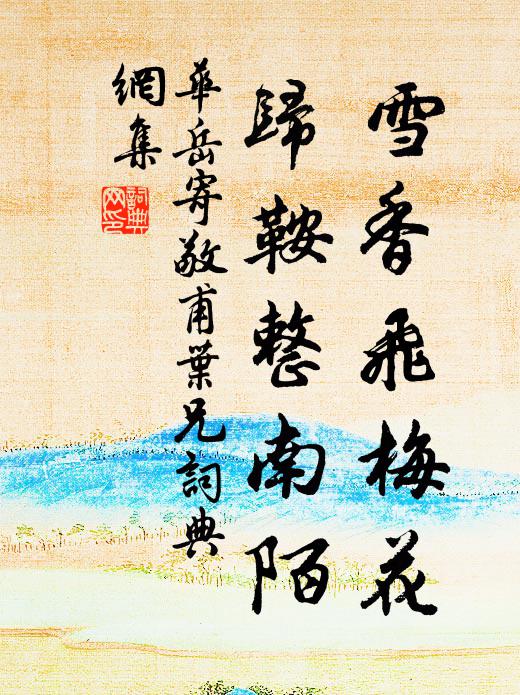 雪香飛梅花
歸鞍整南陌
華岳寄敬甫葉兄詞典
網集
詞典網印